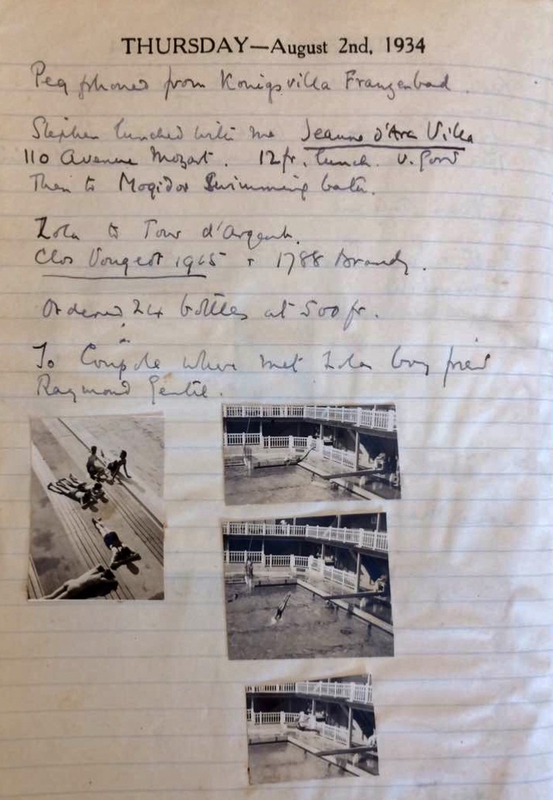 THURSDAY—August 2nd, 1934
Peg phoned from Konigsvilla Franzenbad.
Stephen lunched with me Jeanne d'Arc Villa
110 Avenue Mozart. 12fr. lunch. v. good
Then to Mogidor Swimming bath.
Lola to Tour d'Argent.
Clos Vougeot 1915 + 1788 Brandy.
Ordered 24 bottles at 500 fr.
To Coupole where met Lolas boy friend
Raymond Gentil.